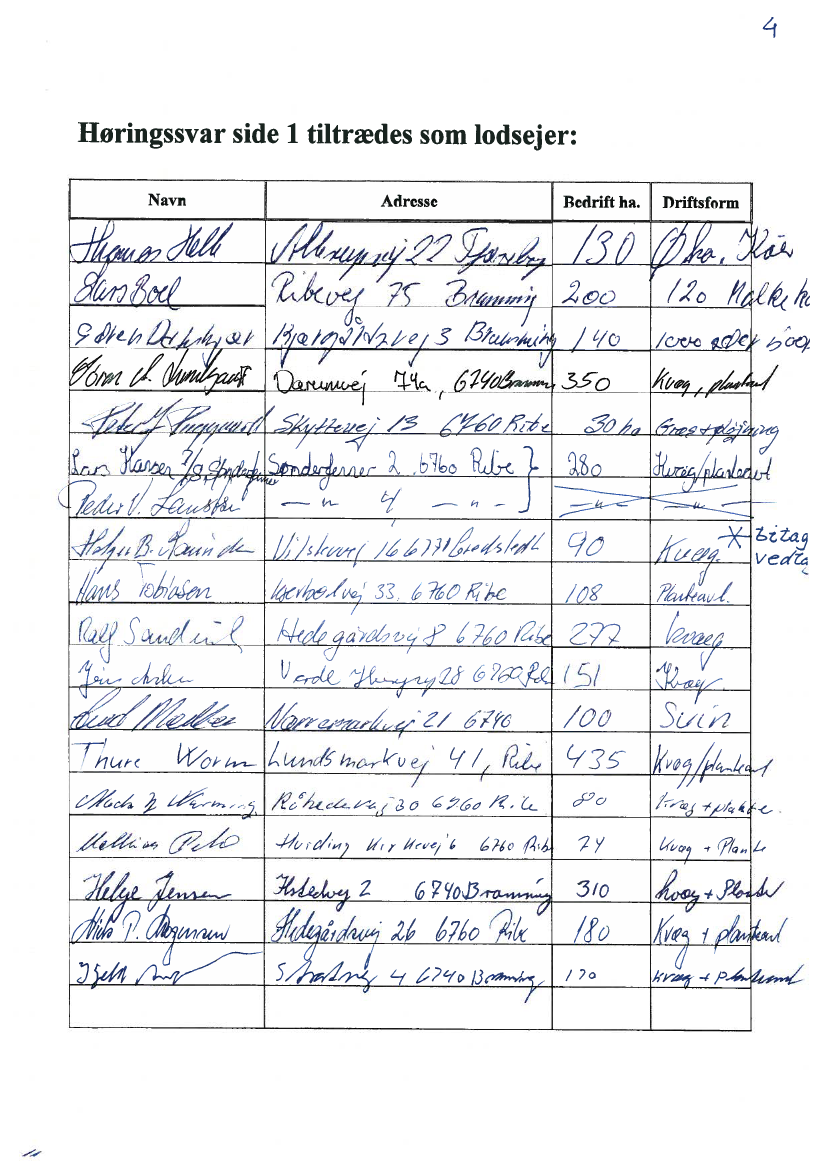 4
Høringssvar side 1 tiltrædes som lodsejer:
Navn Adresse Bedrift ha. Driftsform
Thomas Helk 22 130 Øko. Køer
Lars Boel Ribevej 75 Bramming 200 120 Malke
Søren 3 Bramming 140 1000
Darumvej 74a, 6740 Bramming 350 Kvæg, planteavl
Peter Skyttevej 13 6760 Ribe 30 ha Græs + pløjning
Lars Hansen Sønderfenner 2, 6760 Ribe } 280 Kvæg/planteavl
Peder V. Laustsen — " — 4 — " — — " — — " —
Helge B. 16 6771 Gredstedb 90 Kvæg. bitag
vedta
Hans Tobiasen 33, 6760 Ribe 108 Planteavl.
Ralf Sandvik Hedegårdsvej 8 6760 Ribe 277 kvæg
Jens Varde 28 6760 151 Kvæg
Knud Nørremarkvej 21 6740 100 Svin
Thure Worm Lundsmarkvej 41, Ribe 435 Kvæg/planteavl
Mads Warming 30 6760 Ribe 80 Kvæg + plante.
Mathias Hviding Kirkevej 6 6760 Ribe 74 Kvæg + Plante
Helge Jensen Ilstedvej 2 6740 Bramming 310 kvæg + Plante
Niels P. Mogensen Hedegårdsvej 26 6760 Ribe 180 Kvæg + planteavl
4 6740 Bramming, 170 kvæg + planteavl